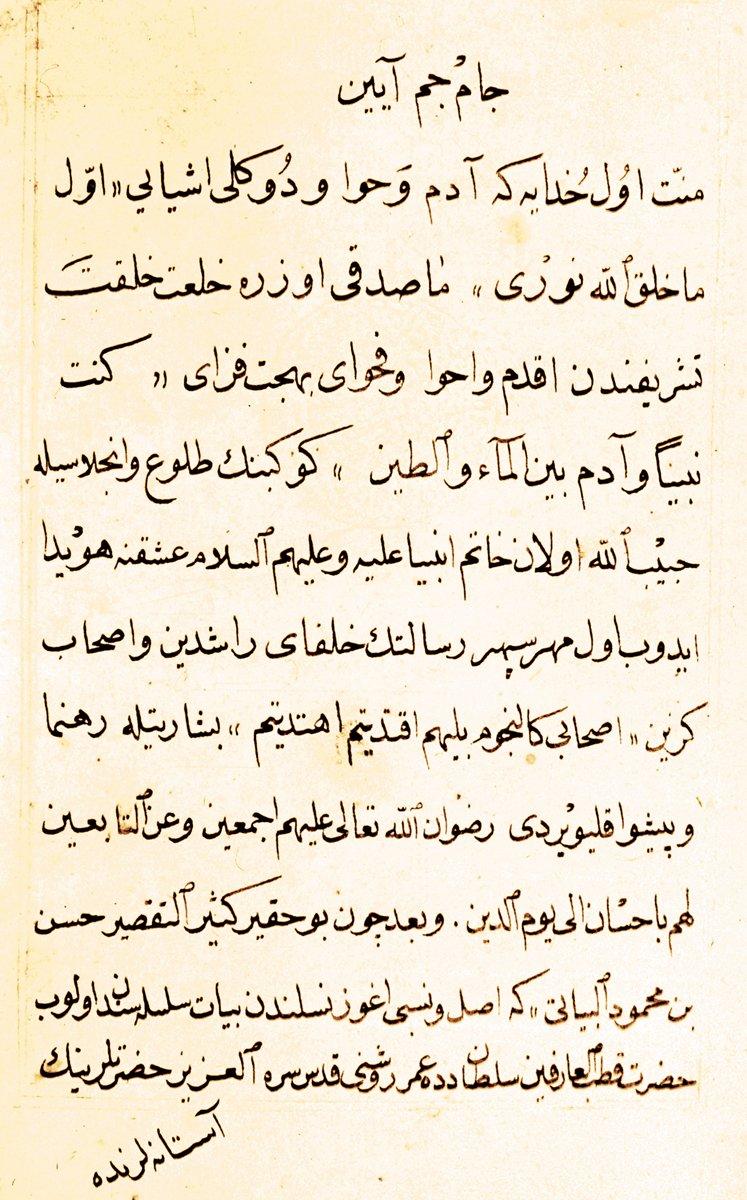 جام جم آيين
منّت اوُل خُدايه كه آدم وَحوا و دُوكلى اشيايي «اوّل
ما خلق ٱلله نورى» ماصدقى اوزره خلعت خلقتَ
تشريفندن اقدم واحوا وفحواى بهجت فزاى «كنت
نبيناً وآدم بين المآء وٱلطين» كوكبنك طلوع وانجلاسيله
حبيب ٱلله اولان خاتم انبيا عليه وعليهم ٱلسلام عشقنه هويدا
ايدوب اول مهر سپهر رسالتك خلفاى راشدين واصحاب
كزين «اصحابى كالنجوم بايهم اقتديتم اهتديتم» بشارتيله رهنما
وپيشوا قليويردى رضوان ٱلله تعالى عليهم اجمعين وعن ٱلتابعين
لهم باحسان الى يوم ٱلدين. وبعد چون بو حقير كثير ٱلتقصير حسن
بن محمود ٱلبياتى «كه اصل ونسبى اغوز نسلندن بيات سلسله سندن اولوب
حضرت قطب ٱلعارفين سلطان دده عمر روشنى قدس سره ٱلعزيز حضرتلرينك
آستانه لرنده